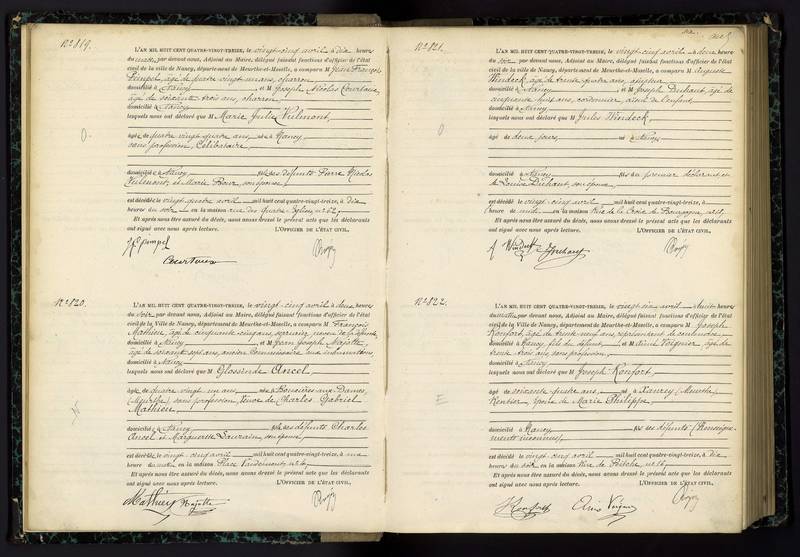 N° 819.
L'AN MIL HUIT CENT QUATRE-VINGT-TREIZE, le vingt-cinq avril à dix heures
du matin par devant nous, Adjoint au Maire, délégué faisant fonctions d'officier de l'état
civil de la ville de Nancy, département de Meurthe-et-Moselle, a comparu M Jean François
Pimpel, âgé de quatre vingt un ans, charron,
domicilié à Nancy et M Joseph Nicolas Courtoux,
âgé de soixante trois ans, charron,
domicilié à Nancy
lesquels nous ont déclaré que M Marie Julie Vuilmont,
âgé de quatre vingt quatre ans, né à Nancy
sans profession, Célibataire,
domicilié à Nancy fille des défunts Pierre Nicolas
Vuilmont, et Marie son épouse,
est décédé le vingt quatre avril mil huit cent quatre-vingt-treize, à dix
heures du soir en la maison rue des Quatre Eglises, n° 62,
Et après nous être assuré du décès, nous avons dressé le présent acte que les déclarants
ont signé avec nous après lecture. L'OFFICIER DE L'ÉTAT CIVIL,
Courtoux
N° 820.
L'AN MIL HUIT CENT QUATRE-VINGT-TREIZE, le vingt-cinq avril à deux heures
du soir par devant nous, Adjoint au Maire, délégué faisant fonctions d'officier de l'état
civil de la Ville de Nancy, département de Meurthe-et-Moselle, a comparu M François
Mathieu, âgé de cinquante cinq ans, neveu de la défunte,
domicilié à Nancy et M Jean Joseph Majotte,
âgé de soixante sept ans, ancien Commissaire aux inhumations,
domicilié à Nancy
lesquels nous ont déclaré que M Glossinde Ancel
âgé de quatre vingt un ans née à Bouxières aux Dames,
(Meurthe), sans profession, Veuve de Charles Gabriel
Mathieu,
domicilié à Nancy fille des défunts Charles
Ancel et Marguerite son épouse,
est décédé le vingt cinq avril mil huit cent quatre-vingt-treize, à une
heure du matin en la maison Place
Et après nous être assuré du décès, nous avons dressé le présent acte que les déclarants
ont signé avec nous après lecture. L'OFFICIER DE L'ÉTAT CIVIL,
Mathieu Majotte
N° 821.
L'AN MIL HUIT CENT QUATRE-VINGT-TREIZE, le vingt-cinq avril à deux heures
du soir par devant nous, Adjoint au Maire, délégué faisant fonctions d'officier de l'état
civil de la ville de Nancy, département de Meurthe-et-Moselle, a comparu M Auguste
Windeck, âgé de trente quatre ans,
domicilié à Nancy et M Joseph Duhaut, âgé de
cinquante huit ans, cordonnier, aïeul de l'enfant,
domicilié à Nancy
lesquels nous ont déclaré que M Jules Windeck,
âgé de deux jours, né à Nancy
domicilié à Nancy fils du premier déclarant et
de Louise Duhaut, son épouse,
est décédé le vingt-cinq avril mil huit cent quatre-vingt-treize, à
heure de midi en la maison Rue de la Croix de Bourgogne,
Et après nous être assuré du décès, nous avons dressé le présent acte que les déclarants
ont signé avec nous après lecture. L'OFFICIER DE L'ÉTAT CIVIL,
A Windeck
N° 822.
L'AN MIL HUIT CENT QUATRE-VINGT-TREIZE, le vingt-six avril à huit heures
du matin par devant nous, Adjoint au Maire, délégué faisant fonctions d'officier de l'état
civil de la ville de Nancy, département de Meurthe-et-Moselle, a comparu M Joseph
Konfort, âgé de trente-neuf ans, représentant de commerce,
domicilié à Nancy, fils du défunt, et M Aimé Voignier, âgé de
trente trois ans, sans profession,
domicilié à Nancy
lesquels nous ont déclaré que M Joseph Konfort,
âgé de soixante quatre ans, né à (Meurthe),
Rentier, époux de Marie Philippe,
domicilié à Nancy fils des défunts (Renseigne-
ments inconnus),
est décédé le vingt-cinq avril mil huit cent quatre-vingt-treize, à dix
heures du soir en la maison Rue de
Et après nous être assuré du décès, nous avons dressé le présent acte que les déclarants
ont signé avec nous après lecture. L'OFFICIER DE L'ÉTAT CIVIL,